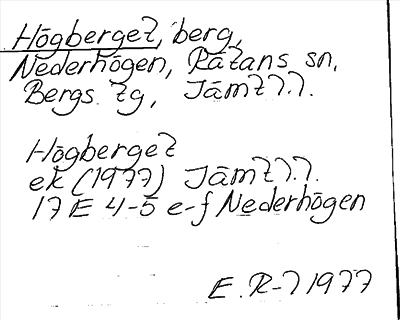 Högberget, berg,
Nederhögen, Rätans sn,
Bergs tg, Jämtl.
Högberget
ek (1977) Jämtl.
17E 4-5 e-f Nederhögen
E. R-l 1977